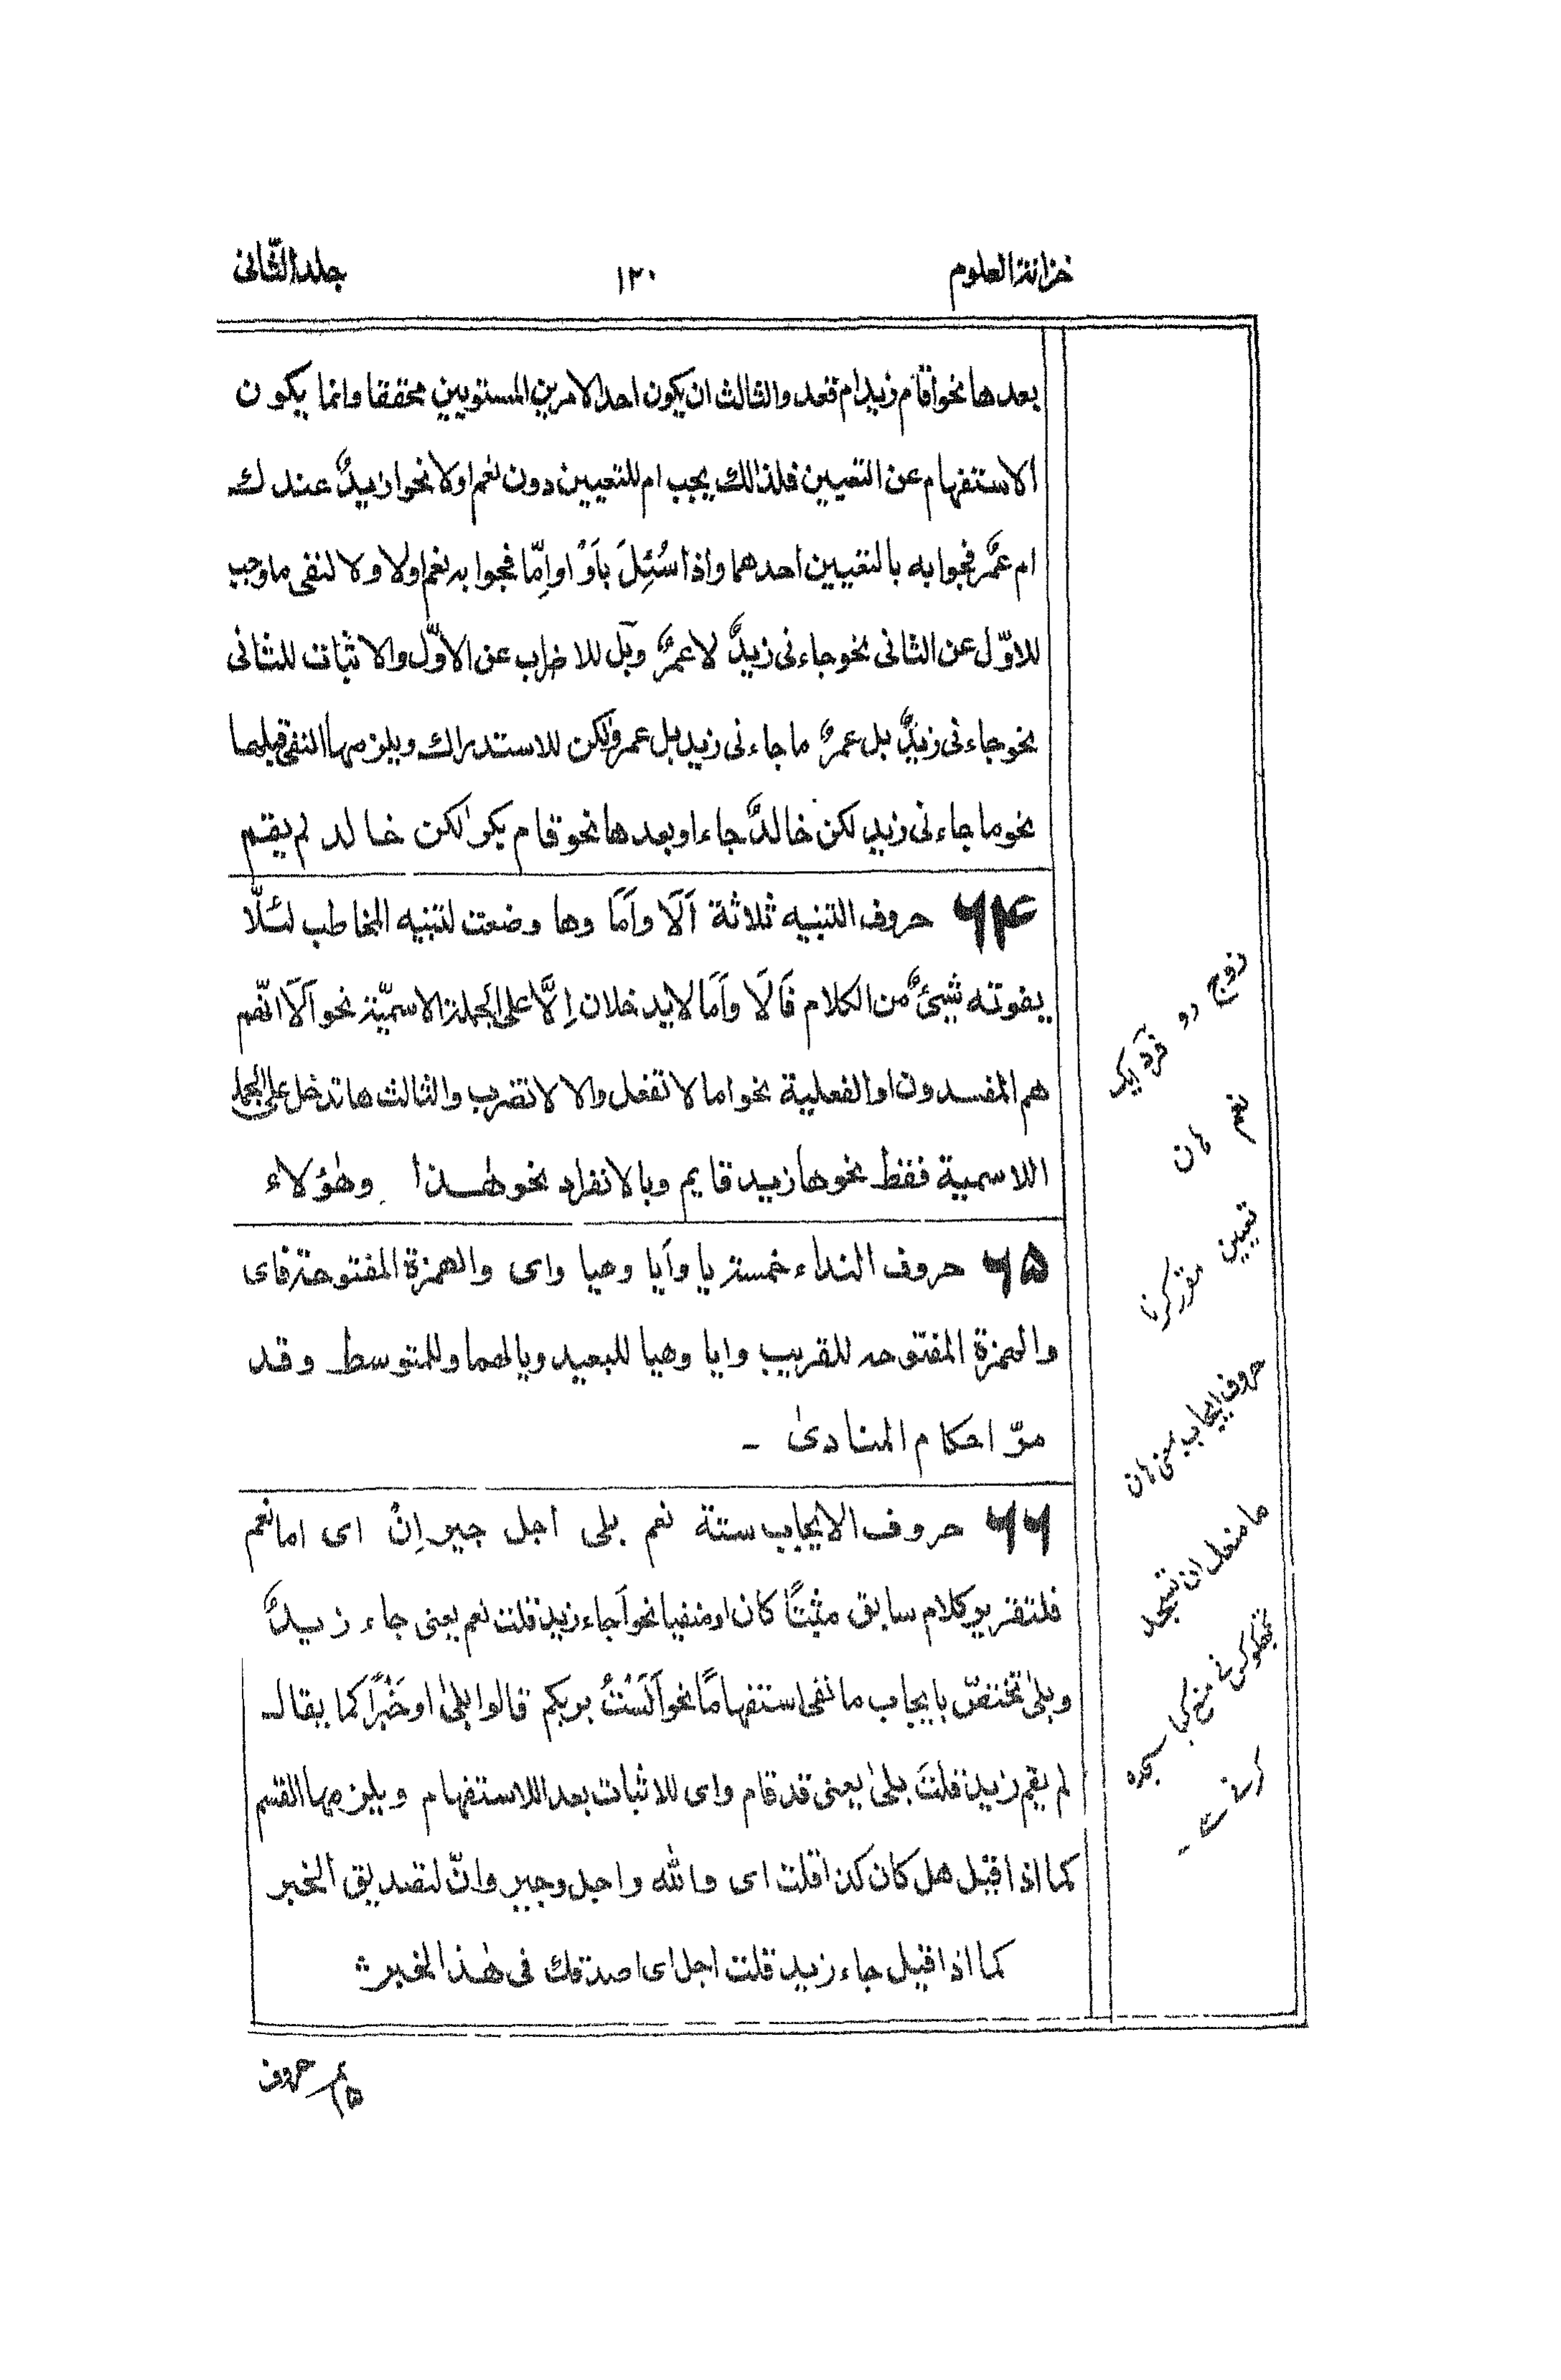 خزانة العلوم
۱۲۰
جلد الثّانی
بعدها نحو اقام زید ام قعد والثالث ان یکون احد الامرین المستویین محققا وانما یکون
الاستفهام عن التعیین فلذالك یجب ام للتعیین دون نعم او لا نحو ازیدٌ عندك
ام عمرٌ فجوابه بالتعیین احدهما واذا سُئِلَ بأَوْ او اِمّا فجوابه نعم اولا ولا لنفی ما وجب
للاوّل عن الثانی نحو جاءنی زیدٌ لا عمرٌ وبَل للاضراب عن الاوّل والاثبات للثانی
نحو جاءنی زیدٌ بل عمرٌ ما جاءنی زید بل عمر ولٰکن للاستدراك ویلزمها النفی قبلها
نحو ما جاءنی زید لکن خالدٌ جاء او بعدها نحو قام بکر لٰکن خالد لم یقم
۶۴ حروف التبنیه ثلاثة اَلَا وأَمَا وها وضعت لتبنیه المخاطب لئلّا
یفوته شیئٌ من الکلام فَالَا وأَمَا لا یدخلان اِلَّا علی الجملة الاسمیّة نحو اَلَا انّهم
هم المفسدون او الفعلیة نحو اما لا تفعل والا لا تضرب والثالث ها تدخل علی الجملة
اللاسمیة فقط نحو ها زید قایم وبالانفراد نحو هٰذا وهٰؤلاء
۶۵ حروف النداء خمسة یا وأَیا وهیا وای والهمزة المفتوحة فای
والهمزة المفتوحه للقریب وایا وهیا للبعید ویا لهما وللمتوسط وقد
مرّ احکام المنادیٰ -
۶۶ حروف الایجاب ستة نعم بلی اجل جیر اِنْ ای اما نعم
فلتقریر کلام سابق مثبتًا کان او منفیا نحو أجاء زید قلت نعم یعنی جاء زیدٌ
وبلیٰ تختصّ بایجاب ما نفی استفهامًا نحو اَلَسْتُ بربکم قالوا بلیٰ او خَبَرًا کما یقال
لم یقم زید قلتَ بلیٰ یعنی قد قام وای للاثبات بعد اللاستفهام ویلزمها القسم
کما اذا قیل هل کان کذا قلت ای والله واجل وجیر وانّ لتصدیق الخبر
کما اذا قیل جاء زید قلت اجل ای اصدقك فی هٰذا الخبر
زوج دو فرد ایک
نعم هان
تعیین مقرر کرنا
حروف ایجاب بمعنی هان
ما منعک ان تسجد
تجھکو کس نے منع کیا سجدہ
کرنے سے -
حروف